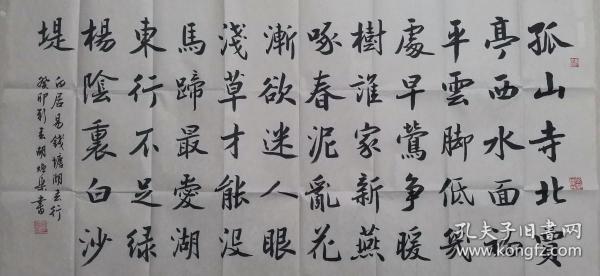 孤山寺北賈
亭西水面初
平雲脚低幾
處早鶯争暖
樹誰家新燕
啄春泥亂花
漸欲迷人眼
淺草才能没
馬蹄最愛湖
東行不足緑
楊陰裏白沙
堤
白居易錢塘湖春行
癸卯 胡 書
孔夫子旧書网